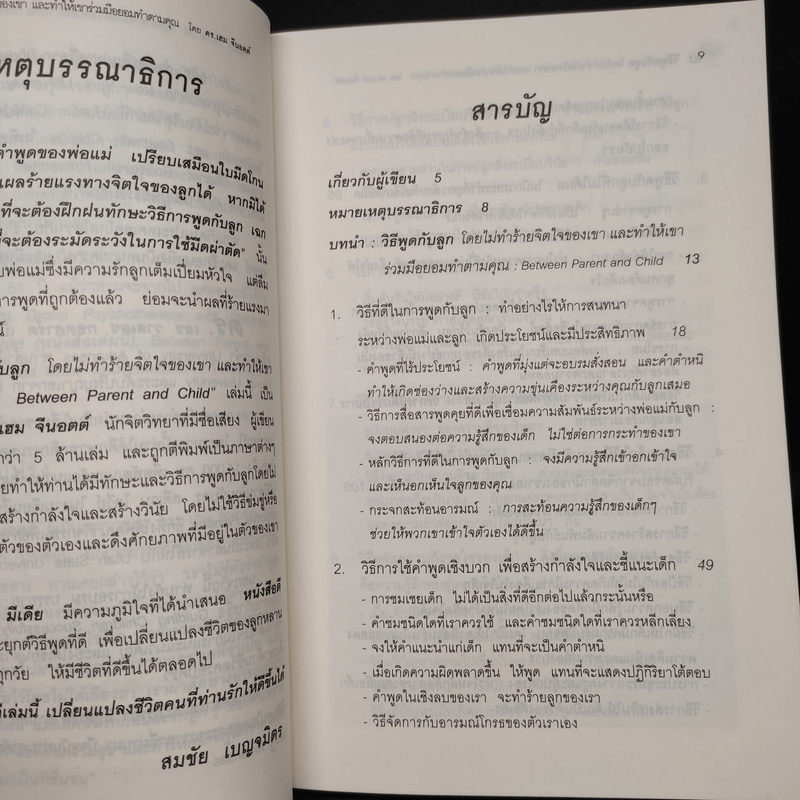 ของเขา และทำให้เขาร่วมมือยอมทำตามคุณ โดย ดร.เฮม จีนอตต์
หตุบรรณาธิการ
คำพูดของพ่อแม่ เปรียบเสมือนใบมีดโกน
แผลร้ายแรงทางจิตใจของลูกได้ หากมิได้
ที่จะต้องฝึกฝนทักษะวิธีการพูดกับลูก เฉก
ที่จะต้องระมัดระวังในการใช้มีดผ่าตัด" นั้น
พ่อแม่ซึ่งมีความรักลูกเต็มเปี่ยมหัวใจ แต่ลืม
การพูดที่ถูกต้องแล้ว ย่อมจะนำผลที่ร้ายแรงมา
กับลูก โดยไม่ทำร้ายจิตใจของเขา และทำให้เขา
Between Parent and Child" เล่มนี้ เป็น
เฮม จีนอตต์ นักจิตวิทยาที่มีชื่อเสียง ผู้เขียน
กว่า 5 ล้านเล่ม และถูกตีพิมพ์เป็นภาษาต่างๆ
ยทำให้ท่านได้มีทักษะและวิธีการพูดกับลูกโดยไม่
สร้างกำลังใจและสร้างวินัย โดยไม่ใช้วิธีข่มขู่หรือ
ตัวของตัวเองและดึงศักยภาพที่มีอยู่ในตัวของเขา
มีเดีย มีความภูมิใจที่ได้นำเสนอ หนังสือดี
ะยุกต์วิธีพูดที่ดี เพื่อเปลี่ยนแปลงชีวิตของลูกหลาน
ทุกวัย ให้มีชีวิตที่ดีขึ้นได้ตลอดไป
เล่มนี้ เปลี่ยนแปลงชีวิตคนที่ท่านรักให้ดีขึ้นได้
สมชัย เบญจมิตร
9
สารบัญ
เกี่ยวกับผู้เขียน 5
หมายเหตุบรรณาธิการ 8
บทนำ : วิธีพูดกับลูก โดยไม่ทำร้ายจิตใจของเขา และทำให้เขา
ร่วมมือยอมทำตามคุณ : Between Parent and Child 13
1. วิธีที่ดีในการพูดกับลูก : ทำอย่างไรให้การสนทนา
ระหว่างพ่อแม่และลูก เกิดประโยชน์และมีประสิทธิภาพ 18
- คำพูดที่ไร้ประโยชน์ : คำพูดที่มุ่งแต่จะอบรมสั่งสอน และคำตำหนิ
ทำให้เกิดช่องว่างและสร้างความขุ่นเคืองระหว่างคุณกับลูกเสมอ
- วิธีการสื่อสารพูดคุยที่ดีเพื่อเชื่อมความสัมพันธ์ระหว่างพ่อแม่กับลูก :
จงตอบสนองต่อความรู้สึกของเด็ก ไม่ใช่ต่อการกระทำของเขา
- หลักวิธีการที่ดีในการพูดกับลูก : จงมีความรู้สึกเข้าอกเข้าใจ
และเห็นอกเห็นใจลูกของคุณ
- กระจกสะท้อนอารมณ์ : การสะท้อนความรู้สึกของเด็กๆ
ช่วยให้พวกเขาเข้าใจตัวเองได้ดีขึ้น
2. วิธีการใช้คำพูดเชิงบวก เพื่อสร้างกำลังใจและชี้แนะเด็ก 49
- การชมเชยเด็ก ไม่ได้เป็นสิ่งที่ดีอีกต่อไปแล้วกระนั้นหรือ
- คำชมชนิดใดที่เราควรใช้ และคำชมชนิดใดที่เราควรหลีกเลี่ยง
- จงให้คำแนะนำแก่เด็ก แทนที่จะเป็นคำตำหนิ
- เมื่อเกิดความผิดพลาดขึ้น ให้พูด แทนที่จะแสดงปฏิกิริยาโต้ตอบ
- คำพูดในเชิงลบของเรา จะทำร้ายลูกของเรา
- วิธีจัดการกับอารมณ์โกรธของตัวเราเอง